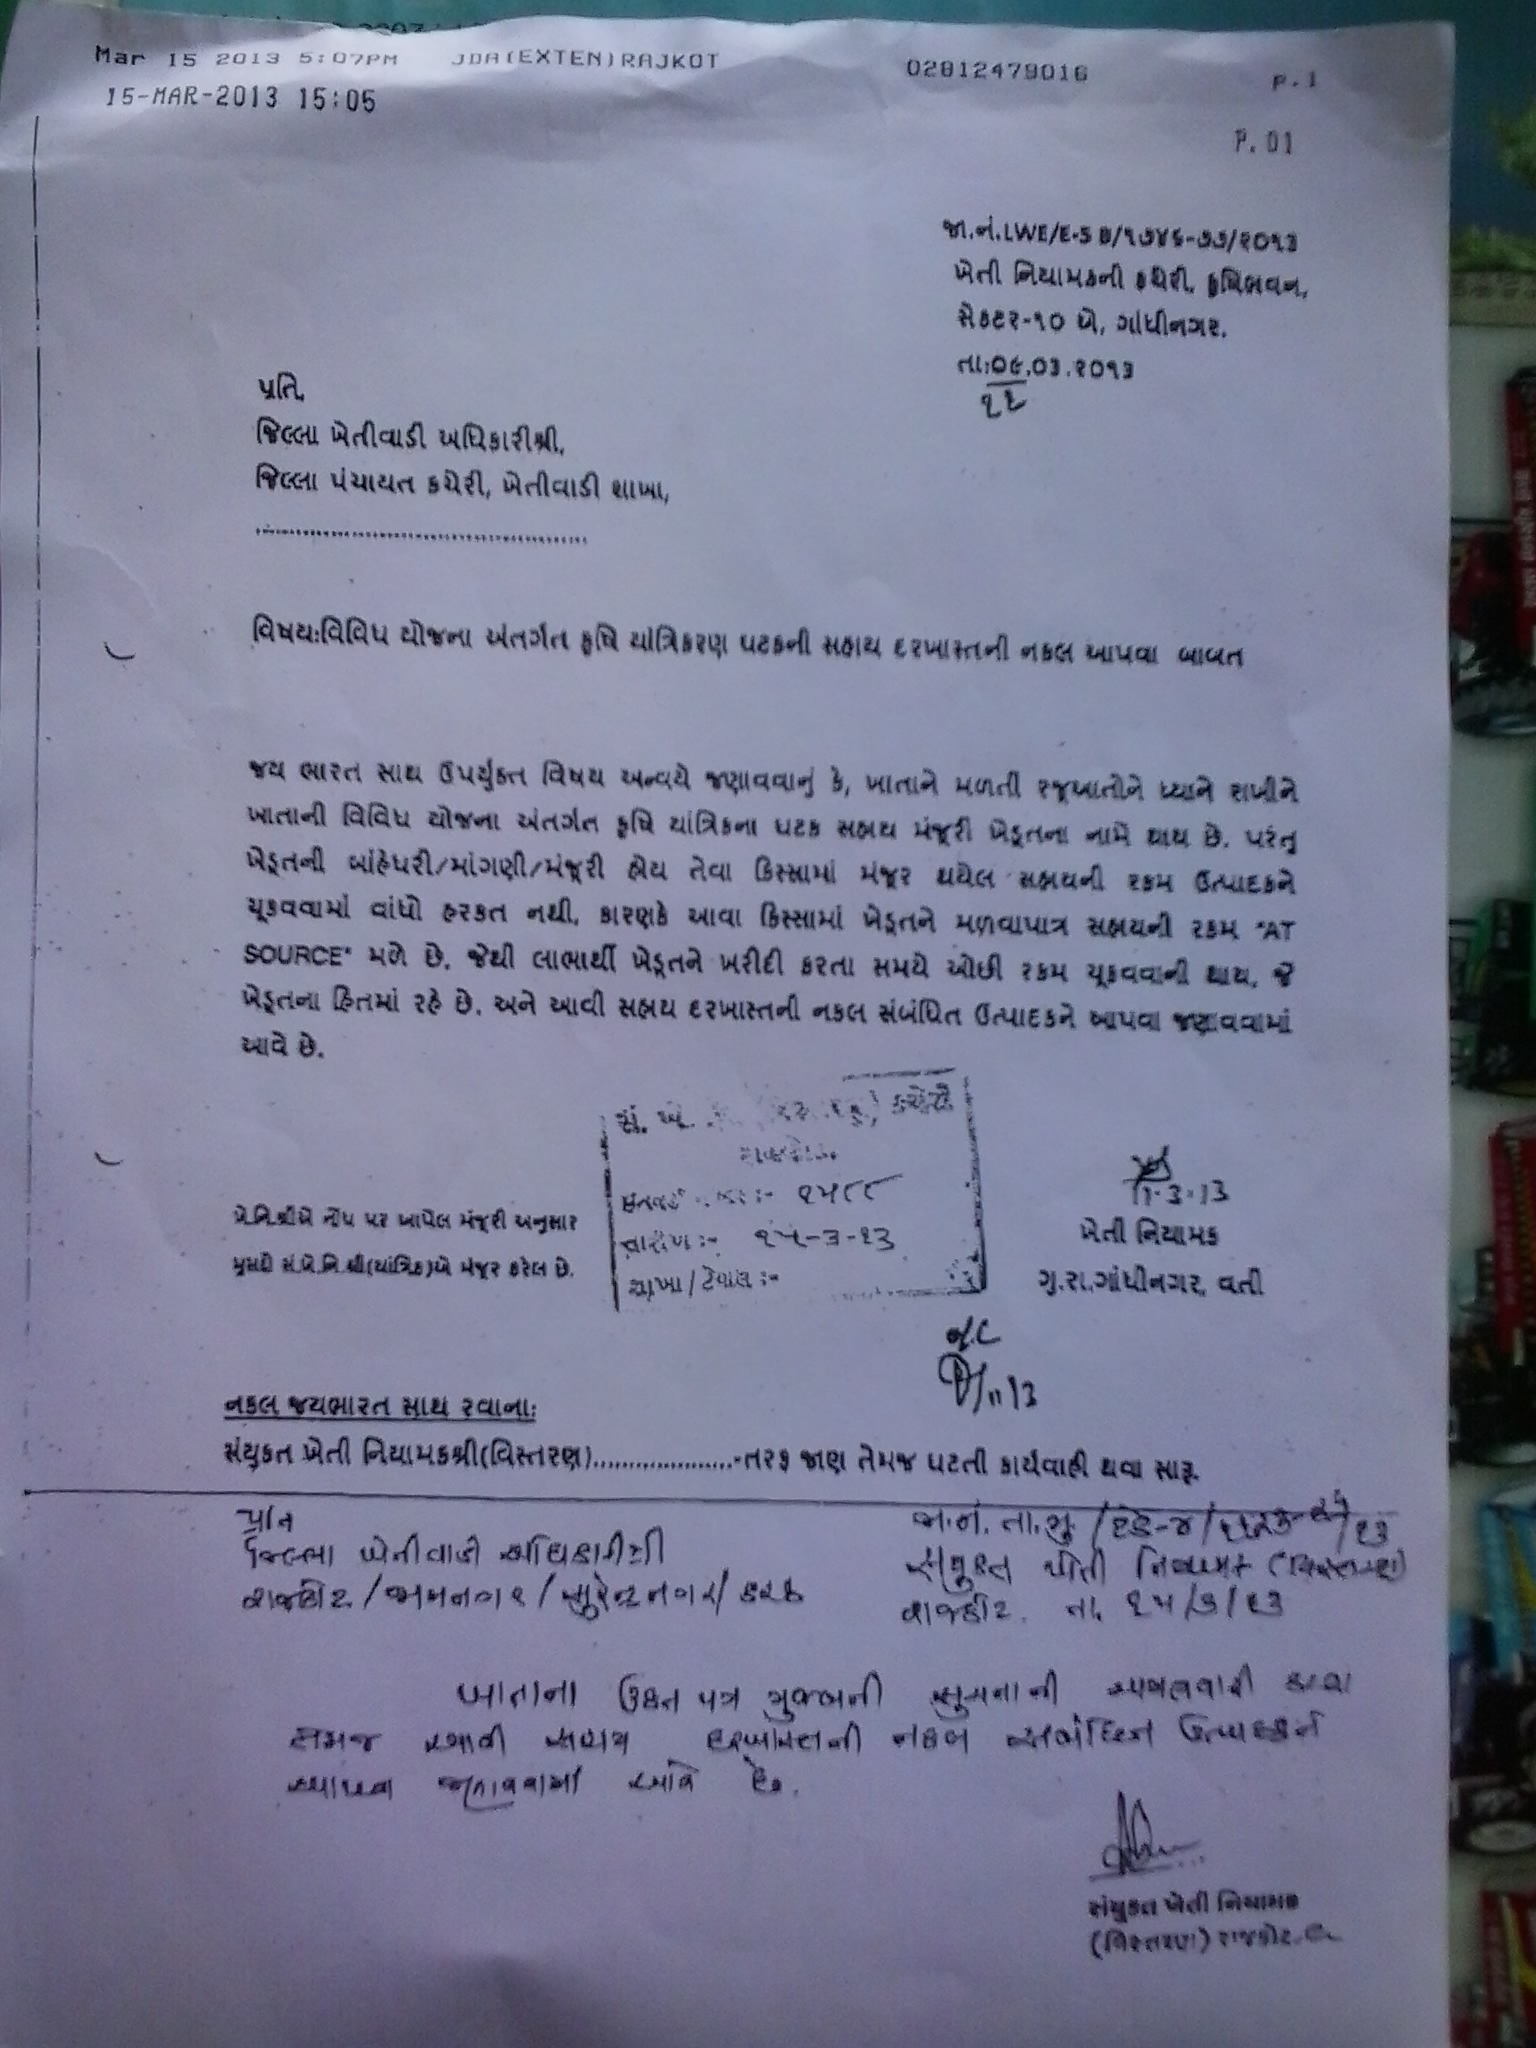 Mar 15 2013 5:07PM JDA(EXTEN)RAJKOT 02812479016 p.1
15-MAR-2013 15:05
P.01
જા.નં.LWE/E-5 B/૧૭૪૬-૭૭/૨૦૧૩
ખેતી નિયામકની કચેરી, કૃષિભવન,
સેકટર-૧૦ એ, ગાંધીનગર.
તા:૦૬.૦૩.૨૦૧૩
૧૧
પ્રતિ,
જિલ્લા ખેતીવાડી અધિકારીશ્રી,
જિલ્લા પંચાયત કચેરી, ખેતીવાડી શાખા,
વિષય:વિવિધ યોજના અંતર્ગત કૃષિ યાંત્રિકરણ ઘટકની સહાય દરખાસ્તની નકલ આપવા બાબત
જય ભારત સાથ ઉપર્યુક્ત વિષય અન્વયે જણાવવાનું કે, ખાતાને મળતી રજૂઆતોને ધ્યાને રાખીને
ખાતાની વિવિધ યોજના અંતર્ગત કૃષિ યાંત્રિકના ઘટક સહાય મંજૂરી ખેડૂતના નામે થાય છે. પરંતુ
ખેડૂતની બાંહેધરી/માંગણી/મંજૂરી હોય તેવા કિસ્સામાં મંજૂર થયેલ સહાયની રકમ ઉત્પાદકને
ચૂકવવામાં વાંધો હરકત નથી. કારણકે આવા કિસ્સામાં ખેડૂતને મળવાપાત્ર સહાયની રકમ "AT
SOURCE" મળે છે. જેથી લાભાર્થી ખેડૂતને ખરીદી કરતા સમયે ઓછી રકમ ચૂકવવાની થાય, જે
ખેડૂતના હિતમાં રહે છે. અને આવી સહાય દરખાસ્તની નકલ સંબંધિત ઉત્પાદકને આપવા જણાવવામાં
આવે છે.
સં. ખે. કચેરી
રાજકોટ.
નંબર :- ૧૫૮૮
તારીખ :- ૧૫-૩-૧૩
શાખા/ટેબલ :-
11-3-13
ખેતી નિયામક
ગુ.રા.ગાંધીનગર, વતી
ખે.નિ.શ્રીએ નોંધ પર આપેલ મંજૂરી અનુસાર
મુસદ્દો સં.ખે.નિ.શ્રી(યાંત્રિક)એ મંજૂર કરેલ છે.
નકલ જયભારત સાથ રવાના:
સંયુકત ખેતી નિયામકશ્રી(વિસ્તરણ)....................-તરફ જાણ તેમજ ઘટતી કાર્યવાહી થવા સારૂ.
પ્રતિ
જિલ્લા ખેતીવાડી અધિકારીશ્રી
રાજકોટ/જામનગર/સુરેન્દ્રનગર/કચ્છ
સંયુકત ખેતી નિયામક (વિસ્તરણ)
રાજકોટ. તા. ૧૫/૩/૧૩
ખાતાના ઉકત પત્ર મુજબની સુચનાની અમલવારી કરવા
સમજ આવી સહાય દરખાસ્તની નકલ સંબંધિત ઉત્પાદકને
આપવા જણાવવામાં આવે છે.
સંયુકત ખેતી નિયામક
(વિસ્તરણ) રાજકોટ.